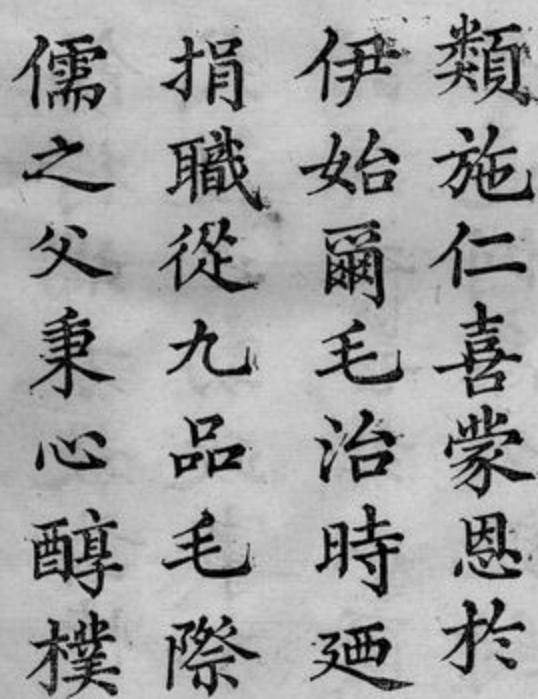 類施仁喜蒙恩於
伊始爾毛治時廼
捐職從九品毛際
儒之父秉心醇樸